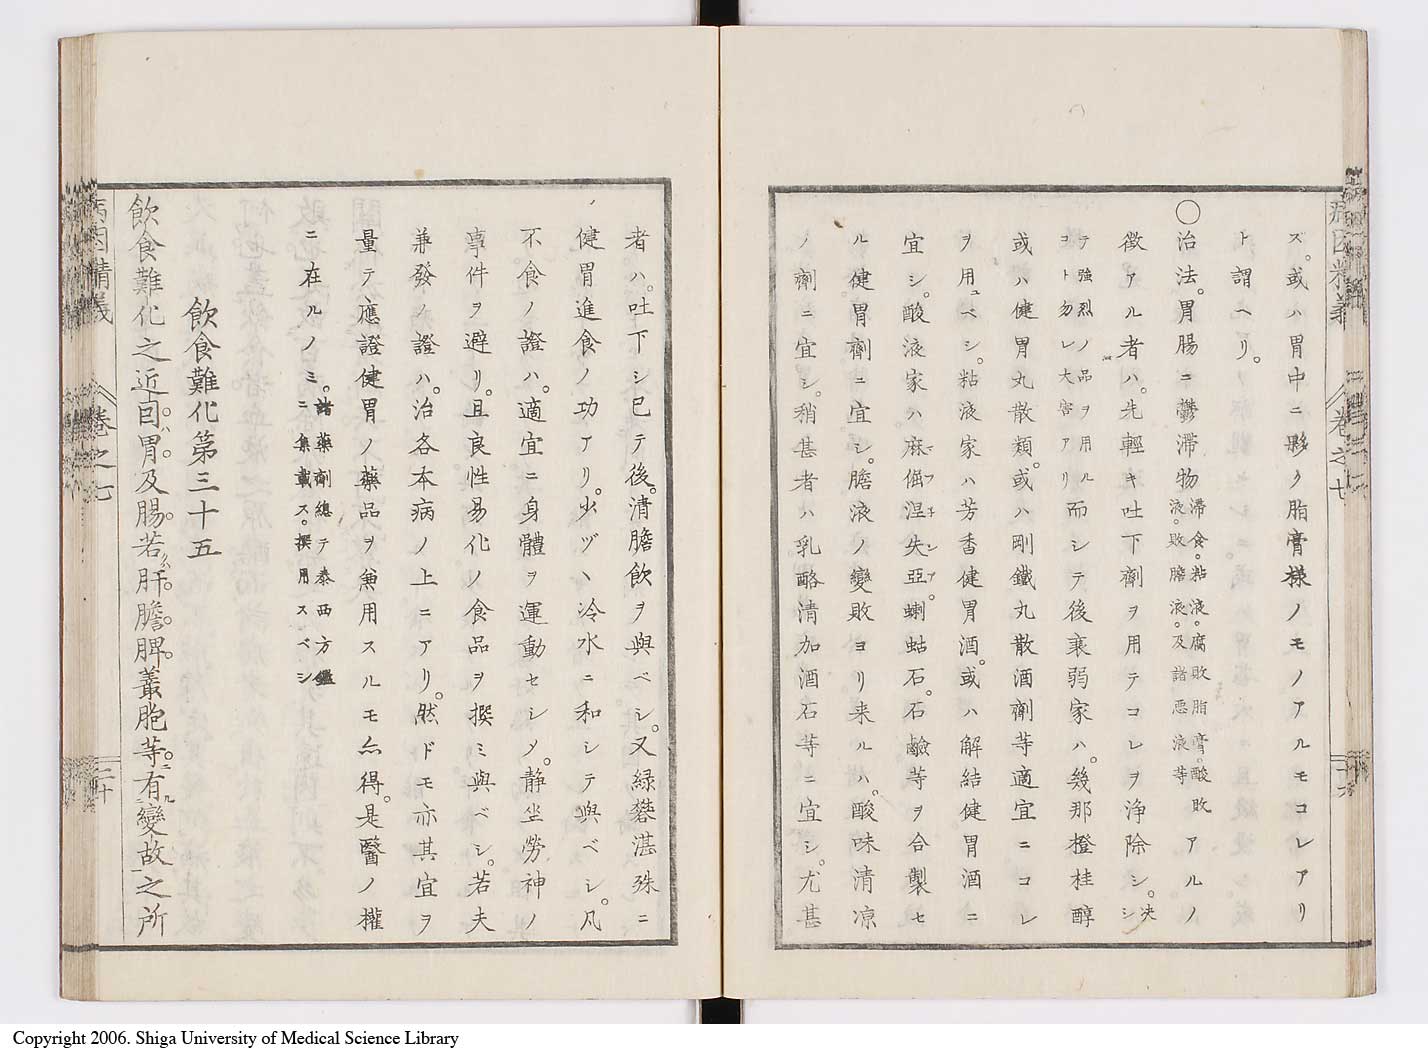 病因精義 卷之七 二十六
ス。或ハ胃中ニ夥ク脂膏様ノモノアルモコレアリ
ト謂ヘリ。
〇治法。胃腸ニ鬱滯物滯食。粘液。腐敗脂膏。酸敗液。敗膽液。及諸惡液等アルノ
徴アル者ハ。先輕キ吐下劑ヲ用テコレヲ浄除シ。决シ
テ強烈ノ品ヲ用ルヿ勿レ大害アリ而シテ後衰弱家ハ。幾那橙桂醇
或ハ健胃丸散類。或ハ剛鐵丸散酒劑等適宜ニコレ
ヲ用ユベシ。粘液家ハ芳香健胃酒。或ハ解結健胃酒ニ
宜シ。酸液家ハ麻倔涅失亞蝲蛄石。石鹼等ヲ合製セ
ル健胃劑ニ宜シ。膽液ノ變敗ヨリ来ルハ。酸味清凉
ノ劑ニ宜シ。稍甚者ハ乳酪清加酒石等ニ宜シ。尤甚
者ハ。吐下シ已テ後。清膽飲ヲ與ベシ。又緑礬湛殊ニ
健胃進食ノ功アリ。少ヅヽ冷水ニ和シテ與ベシ。凡
不食ノ證ハ。適宜ニ身體ヲ運動セシメ。静坐勞神ノ
事件ヲ避リ。且良性易化ノ食品ヲ撰ミ與ベシ。若夫
兼發ノ證ハ。治各本病ノ上ニアリ。然ドモ亦其宜ヲ
量テ應證健胃ノ藥品ヲ兼用スルモ亦得。是醫ノ權
ニ在ルノミ。諸藥劑總テ泰西方鑑ニ集載ス。撰用スベシ
飲食難化第三十五
飲食難化之近因。胃。及腸。若肝。膽。脾。叢胞等。有變故之所
病因精義 卷之七 二十
Copyright 2006. Shiga University of Medical Science Library